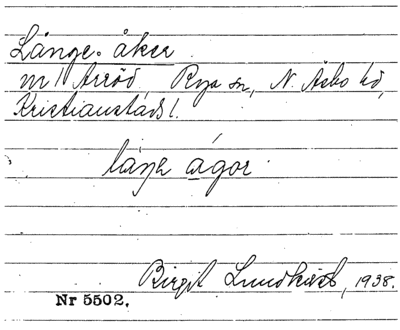 Långe-åker
m Arröd, Rya sn, N. Åsbo hd,
Kristianstads l.
låŋe ågor
Birgit Lundkvist, 1938.
Nr 5502.